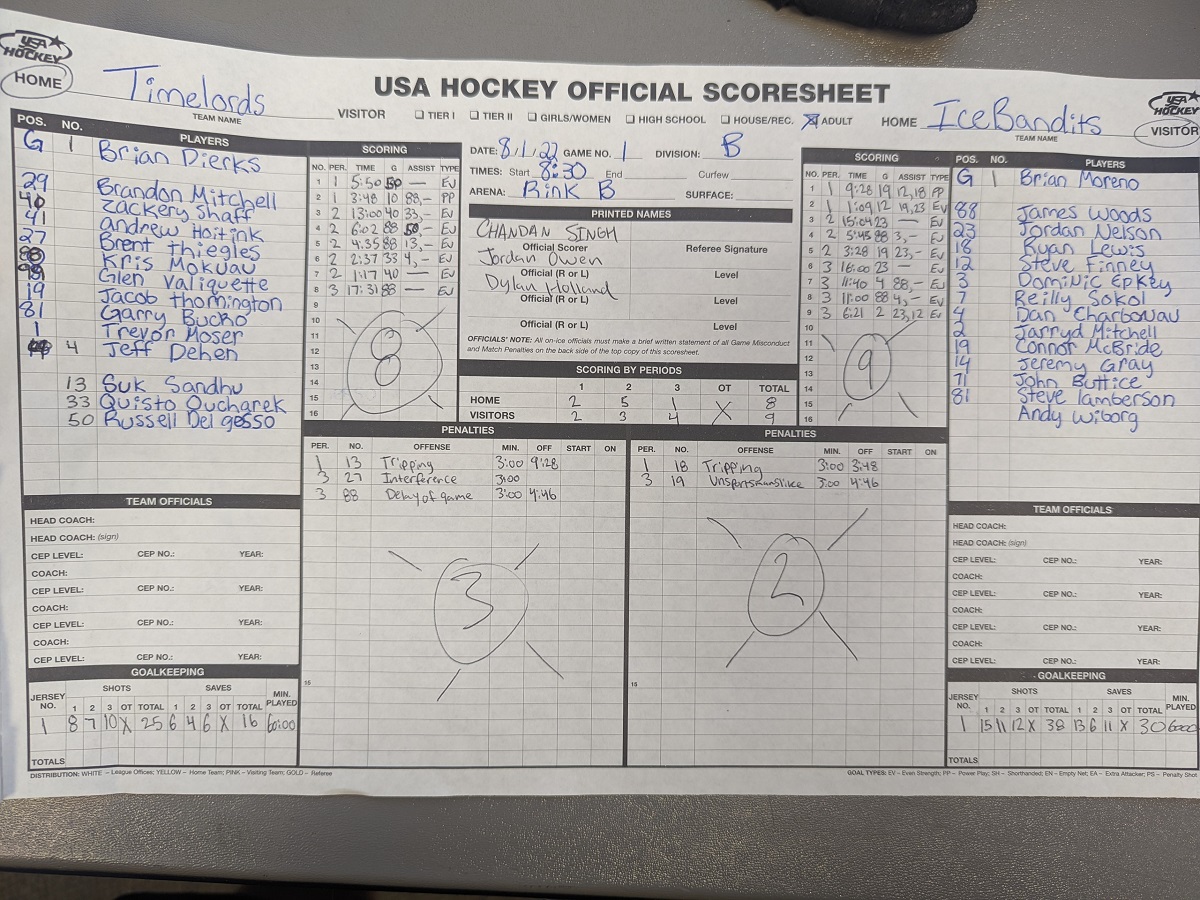 USA HOCKEY
HOME
Timelords
TEAM NAME
USA HOCKEY OFFICIAL SCORESHEET
VISITOR
TIER I TIER II GIRLS/WOMEN HIGH SCHOOL HOUSE/REC. ADULT
HOME
IceBandits
TEAM NAME
USA HOCKEY
VISITOR
POS. NO. PLAYERS
G 1 Brian Dierks
29 Brandon Mitchell
40 Zackery Shaff
41 andrew Hoitink
27 Brent Thiegles
88 Kris Mokuau
Glen Valiquette
19 Jacob thornington
81 Garry Bucko
1 Trevor Moser
4 Jeff Dehen
13 Suk Sandhu
33 Quisto Oucharek
50 Russell Del gesso
SCORING
NO. PER. TIME G ASSIST TYPE
1 1 5:50 50 — EV
2 1 3:48 10 88,- PP
3 2 13:00 40 33,- EV
4 2 6:02 88 50,- EV
5 2 4:35 88 13,- EV
6 2 2:37 33 4,- EV
7 2 1:17 40 — EV
8 3 17:31 88 — EV
9
10
11
12
13
14
15
16
8
DATE: 8/1/22 GAME NO. 1 DIVISION: B
TIMES: Start 8:30 End Curfew
ARENA: Rink B SURFACE:
PRINTED NAMES
CHANDAN SINGH
Official Scorer Referee Signature
Jordan Owen
Official (R or L) Level
Dylan Holland
Official (R or L) Level
Official (R or L) Level
OFFICIALS' NOTE: All on-ice officials must make a brief written statement of all Game Misconduct
and Match Penalties on the back side of the top copy of this scoresheet.
SCORING BY PERIODS
1 2 3 OT TOTAL
HOME 2 5 1 X 8
VISITORS 2 3 4 X 9
SCORING
NO. PER. TIME G ASSIST TYPE
1 1 9:28 19 12,18 PP
2 1 1:09 12 19,23 EV
3 2 15:04 23 — EV
4 2 5:45 88 3,- EV
5 2 3:28 19 23,- EV
6 3 16:00 23 — EV
7 3 11:40 4 88,- EV
8 3 11:00 88 4,- EV
9 3 6:21 2 23,12 EV
10
11
12
13
14
15
16
9
POS. NO. PLAYERS
G 1 Brian Moreno
88 James Woods
23 Jordan Nelson
18 Ryan Lewis
12 Steve Finney
3 Dominic Epkey
7 Reilly Sokol
4 Dan Charbonau
2 Jarryd Mitchell
19 Connor McBride
14 Jeremy Gray
71 John Buttice
81 Steve Tamberson
Andy Wiborg
PENALTIES
PER. NO. OFFENSE MIN. OFF START ON
1 13 Tripping 3:00 9:28
3 27 Interference 3:00
3 88 Delay of game 3:00 4:46
3
15
PENALTIES
PER. NO. OFFENSE MIN. OFF START ON
1 18 Tripping 3:00 3:48
3 19 Unsportsmanslike 3:00 4:46
2
15
TEAM OFFICIALS
HEAD COACH:
HEAD COACH: (sign)
CEP LEVEL: CEP NO.: YEAR:
COACH:
CEP LEVEL: CEP NO.: YEAR:
COACH:
CEP LEVEL: CEP NO.: YEAR:
COACH:
CEP LEVEL: CEP NO.: YEAR:
GOALKEEPING
JERSEY NO. SHOTS SAVES MIN. PLAYED
1 2 3 OT TOTAL 1 2 3 OT TOTAL
1 8 7 10 X 25 6 4 6 X 16 60:00
TOTALS
TEAM OFFICIALS
HEAD COACH:
HEAD COACH: (sign)
CEP LEVEL: CEP NO.: YEAR:
COACH:
CEP LEVEL: CEP NO.: YEAR:
COACH:
CEP LEVEL: CEP NO.: YEAR:
COACH:
CEP LEVEL: CEP NO.: YEAR:
GOALKEEPING
JERSEY NO. SHOTS SAVES MIN. PLAYED
1 2 3 OT TOTAL 1 2 3 OT TOTAL
1 15 11 12 X 38 13 6 11 X 30 60:00
TOTALS
DISTRIBUTION: WHITE – League Offices; YELLOW – Home Team; PINK – Visiting Team; GOLD – Referee
GOAL TYPES: EV – Even Strength; PP – Power Play; SH – Shorthanded; EN – Empty Net; EA – Extra Attacker; PS – Penalty Shot